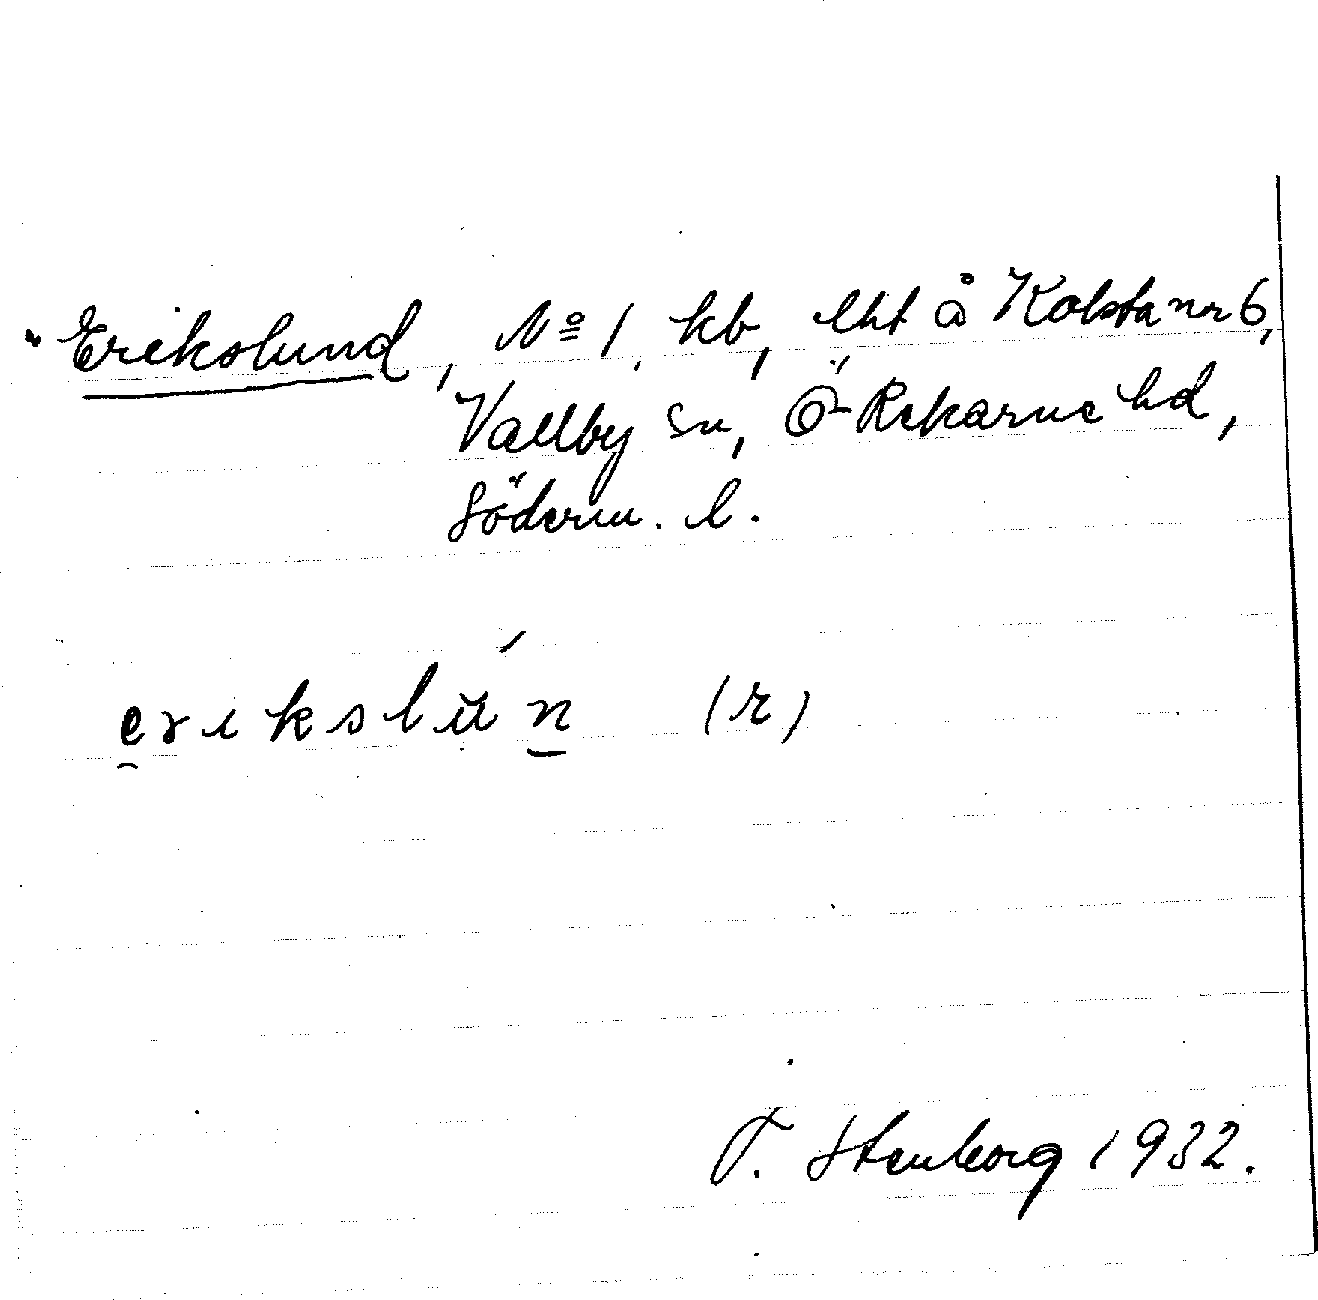 "Erikslund, Nº 1, kb, lht å Kolsta nr 6,
Vallby sn, Ö-Rekarne hd,
Söderm. l.
erikslun (r)
T. Stenborg 1932.